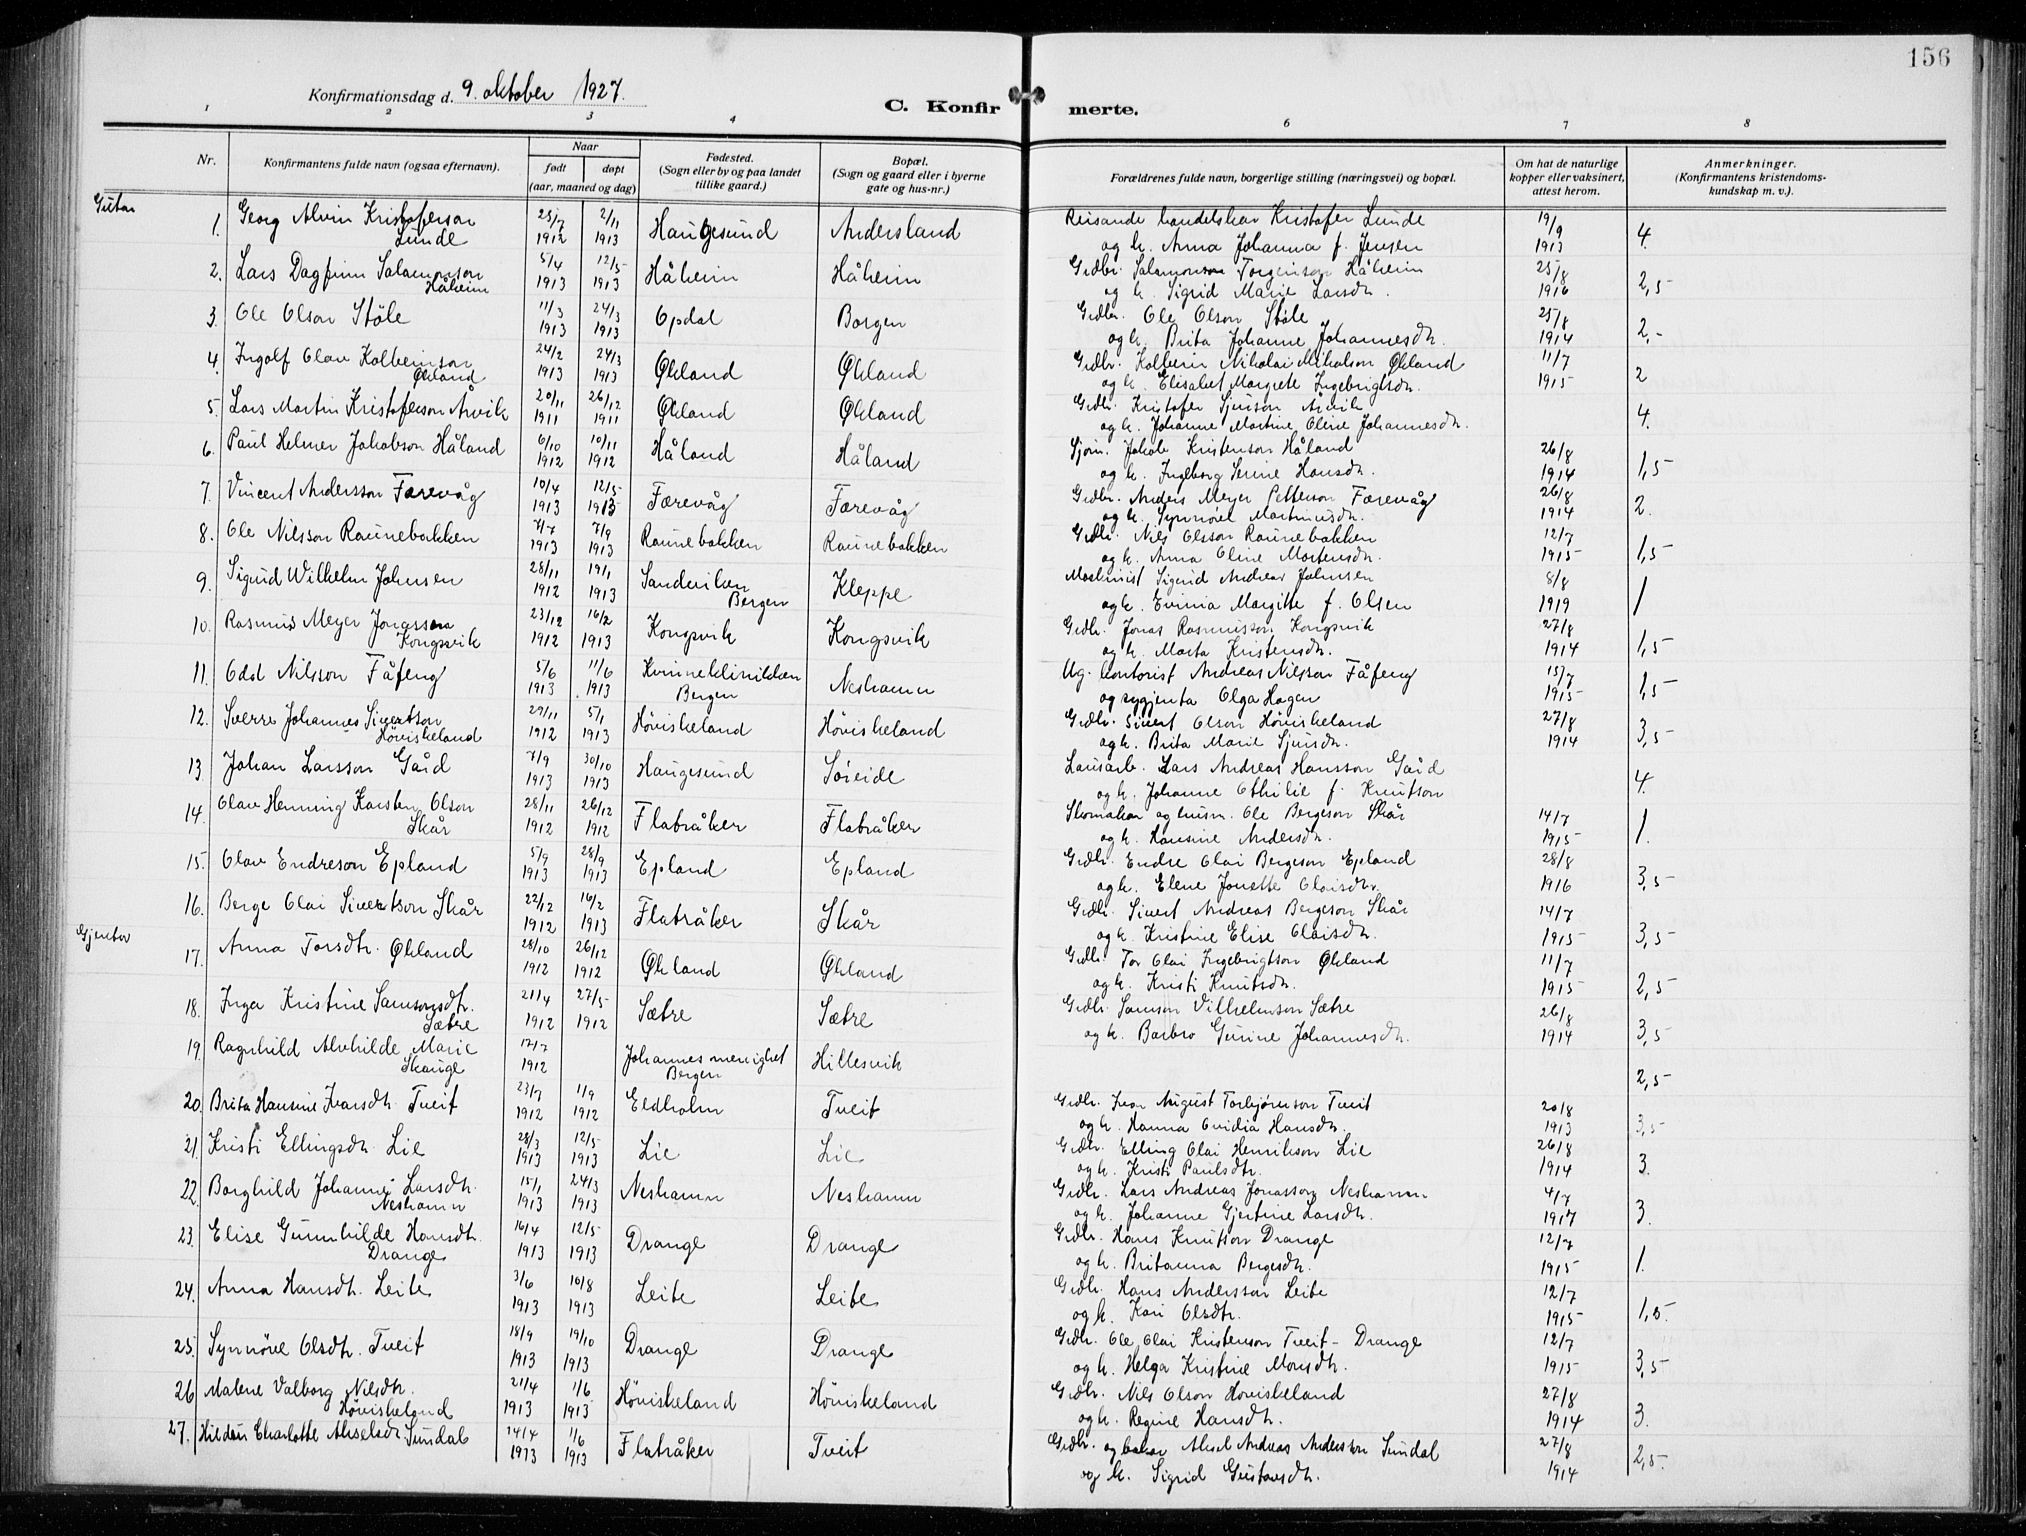 156
Konfirmationsdag d. 9. oktober 1927.
C. Konfirmerte.
1 2 3 4 5 6 7 8
Nr.
Konfirmantens fulde navn (ogsaa efternavn).
Naar
født døpt
(aar, maaned og dag)
Fødested.
(Sogn eller by og paa landet
tillike gaard.)
Bopæl.
(Sogn og gaard eller i byerne
gate og hus-nr.)
Forældrenes fulde navn, borgerlige stilling (næringsvei) og bopæl.
Om hat de naturlige
kopper eller vaksinert,
attest herom.
Anmerkninger.
(Konfirmantens kristendoms-
kundskap m. v.).
Gutar
1. Georg Alvin Kristoferson 25/7 2/11 Haugesund Andersland Reisande handelskar Kristofer Lunde 19/9 4.
Lunde 1912 1913 og k. Anna Johanna f. Jensen 1913
2. Lars Dagfinn Salamonson 5/4 12/5 Håheim Håheim Grdbr. Salamonson Torgeirson Håheim 25/8 2,5
Håheim 1913 1913 og k. Sigrid Marie Larsdr. 1916
3. Ole Olson Støle 11/3 24/3 Opdal Borgen Grdbr. Ole Olson Støle 25/8 2,-
1913 1913 og k. Brita Johanne Johannesdr. 1914
4. Ingolf Olav Kolbeinson 24/2 24/3 Økland Økland Grdbr. Kolbein Nikolai Mikalson Økland 11/7 2
Økland 1913 1913 og k. Elisabet Margrete Ingebrigtsdr. 1915
5. Lars Martin Kristoferson Arvik 20/11 26/12 Økland Økland Grdbr. Kristofer Sjurson Arvik 4.
1911 1911 og k. Johanne Martine Oline Johannesdr.
6. Paul Helmer Jakobson Håland 6/10 10/11 Håland Håland Sjøm. Jakob Kristenson Håland 26/8 1,5
1912 1912 og k. Ingeborg Serine Hansdr. 1914
7. Vincent Andersson Færevåg 10/4 12/5 Færevåg Færevåg Grdbr. Anders Meyer Petterson Færevåg 26/8 2.
1913 1913 og k. Synnøve Martinusdr. 1914
8. Ole Nilsson Raunebakken 7/7 7/9 Raunebakken Raunebakken Grdbr. Nils Olsson Raunebakken 12/7 1,5
1913 1913 og k. Anna Oline Mortensdr. 1915
9. Sigurd Wilhelm Johnsen 28/11 19/1 Sandviken Kleppe Maskinist Sigurd Andreas Johnsen 8/8 1
1912 1913 Bergen og k. Evinia Margitte f. Olsen 1919
10. Rasmus Meyer Jonasson 23/12 16/2 Kongsvik Kongsvik Grdbr. Jonas Rasmusson Kongsvik 27/8 1,5
Kongsvik 1912 1913 og k. Marta Kristensdr. 1914
11. Odd Nilsson Fåfeng 5/6 11/6 Kvinneklinikken Neshamn Ug. kontorist Andreas Nilsson Fåfeng 15/7 1,5
1913 1913 Bergen og sygjenta Olga Hagen 1915
12. Sverre Johannes Sivertson 29/11 5/1 Høviskeland Høviskeland Grdbr. Sivert Olson Høviskeland 27/8 3,5
Høviskeland 1912 1913 og k. Brita Marie Sjursdr. 1914
13. Johan Larsson Gård 7/9 30/10 Haugesund Søreide Lausarb. Lars Andreas Hansson Gård 4.
1913 1913 og k. Johanne Othilie f. Knutson
14. Olav Henning Karsten Olson 28/11 26/12 Flatråker Flatråker Skomakar og husm. Ole Bergeson Skår 14/7 1.
Skår 1912 1912 og k. Hansine Andersdr. 1915
15. Olav Endreson Epland 5/9 28/9 Epland Epland Grdbr. Endre Olai Bergeson Epland 28/8 3,5
1913 1913 og k. Elene Jonette Olaisdr. 1916
16. Berge Olai Sivertson Skår 22/12 16/2 Flatråker Skår Grdbr. Sivert Andreas Bergeson Skår 14/7 3,5
1912 1913 og k. Kristine Elise Olaisdr. 1915
Gjentor
17. Anna Torsdtr. Økland 28/10 26/12 Økland Økland Grdbr. Tor Olai Ingebrigtson Økland 11/7 2,5
1912 1912 og k. Kristi Knutsdr. 1915
18. Inga Kristine Samsonsdtr. 21/4 27/5 Sætre Sætre Grdbr. Samson Vilhelmson Sætre 26/8 3,5
Sætre 1912 1912 og k. Barbro Gurine Johannesdr. 1914
19. Ragnhild Alvhilde Marie 17/7 Johannes menighet Hillesvik 2,5
Skauge 1912 Bergen
20. Brita Hansine Ivarsdtr. Tveit 23/7 1/9 Eldholm Tveit Grdbr. Ivar August Torbjørnson Tveit 20/8 3,5
1912 1912 og k. Hanna Ovidia Hansdr. 1913
21. Kristi Ellingsdtr. Lie 28/3 12/5 Lie Lie Grdbr. Elling Olai Henrikson Lie 26/8 3.
1913 1913 og k. Kristi Paulsdtr. 1914
22. Borghild Johanne Larsdtr. 15/1 24/3 Neshamn Neshamn Grdbr. Lars Andreas Jonasson Neshamn 4/7 3.
Neshamn 1913 1913 og k. Johanne Gjertine Larsdtr. 1917
23. Elise Gunnhilde Hansdtr. 16/4 12/5 Drange Drange Grdbr. Hans Knutson Drange 12/7 1.
Drange 1913 1913 og k. Britanna Bergesdtr. 1915
24. Anna Hansdtr. Leite 3/6 10/8 Leite Leite Grdbr. Hans Andersson Leite 12/7 1,5.
1913 1913 og k. Kari Olsdtr. 1915
25. Synnöve Olsdtr. Tveit 18/9 19/10 Drange Drange Grdbr. Ole Olai Kristenson Tveit - Drange 12/7 3,5
1913 1913 og k. Helga Kristine Monsdtr. 1915
26. Malene Valborg Nilsdtr. 21/4 1/6 Høviskeland Høviskeland Grdbr. Nils Olson Høviskeland 27/8 3.
Høviskeland 1913 1913 og k. Regine Hansdtr. 1914
27. Hildur Charlotte Akselsdr. Sundal 24/4 1/6 Flatråker Tveit Grdbr. og bakar Aksel Andreas Andersson Sundal 27/8 2,5.
1913 1913 og k. Sigrid Gustavsdtr. 1914